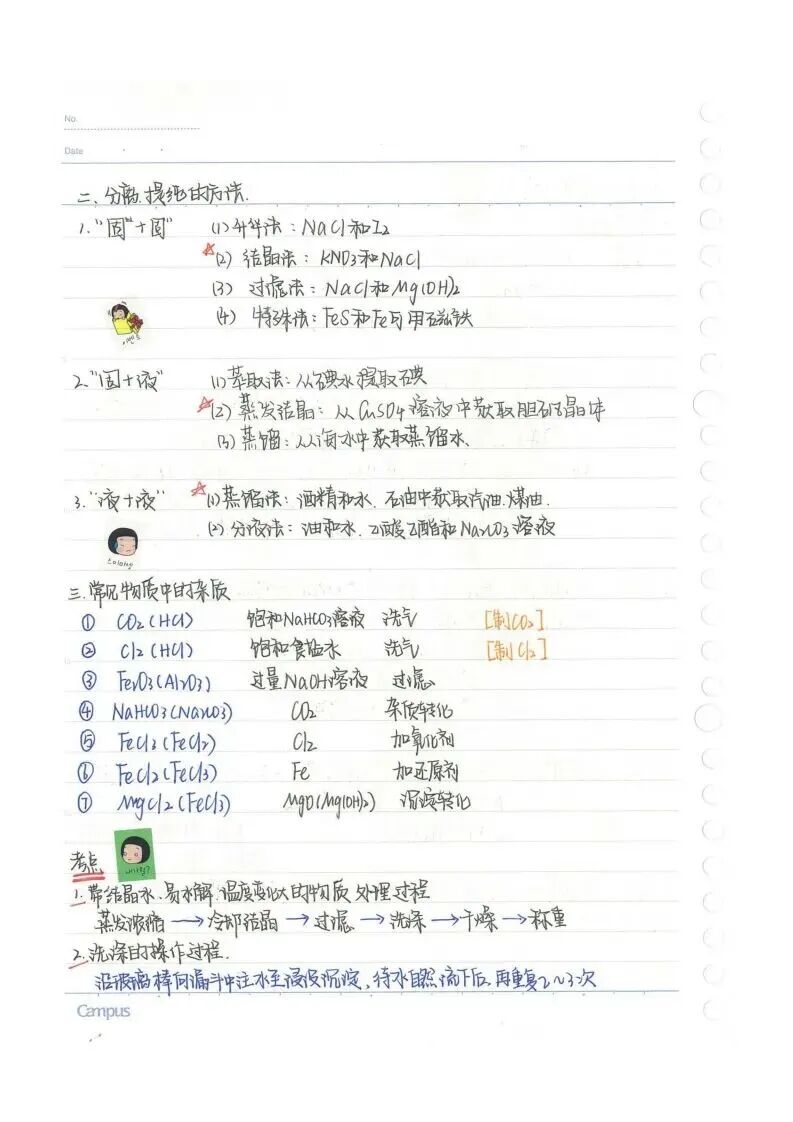 No.
Date
二、分离、提纯的方法.
1. "固"+固" (1) 升华法：NaCl和I2
☆(2) 结晶法：KNO3和NaCl
(3) 过滤法：NaCl和Mg(OH)2
(4) 特殊法：FeS和Fe可用磁铁
2. "固+液" (1) 萃取法：从碘水提取碘
☆(2) 蒸发结晶：从CuSO4溶液中获取胆矾晶体
(3) 蒸馏：从海水中获取蒸馏水.
3. "液+液" ☆(1) 蒸馏法：酒精和水、石油中获取汽油.煤油.
(2) 分液法：油和水、乙酸乙酯和Na2CO3溶液
三.常见物质中的杂质
① CO2(HCl) 饱和NaHCO3溶液 洗气 [制CO2]
② Cl2(HCl) 饱和食盐水 洗气 [制Cl2]
③ Fe2O3(Al2O3) 过量NaOH溶液 过滤
④ NaHCO3(Na2CO3) CO2 杂质转化
⑤ FeCl3(FeCl2) Cl2 加氧化剂
⑥ FeCl2(FeCl3) Fe 加还原剂
⑦ MgCl2(FeCl3) MgO(Mg(OH)2) 沉淀转化
考点
1. 带结晶水、易水解、温度变化大的物质处理过程
蒸发浓缩→冷却结晶→过滤→洗涤→干燥→称重
2. 洗涤的操作过程.
沿玻璃棒向漏斗中注水至浸没沉淀，待水自然流下后，再重复2~3次
Campus